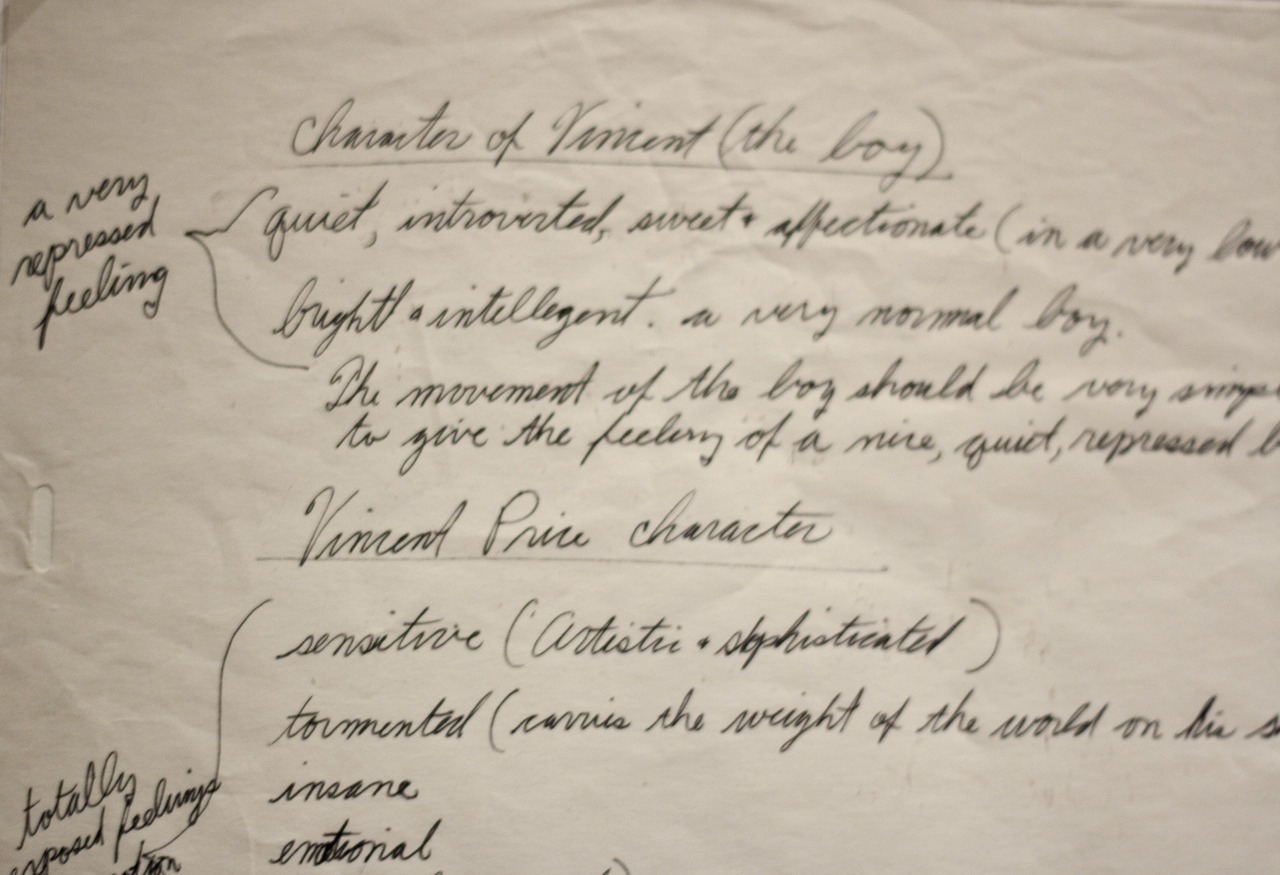 Character of Vincent (the boy)
a very
repressed
feeling
quiet, introverted, sweet & affectionate (in a very low
bright & intellegent. a very normal boy.
The movement of the boy should be very
to give the feeling of a nice, quiet, repressed
Vincent Price character
sensitive (Artistic & sophisticated)
tormented (carries the weight of the world on his
insane
emotional
totally
exposed feelings